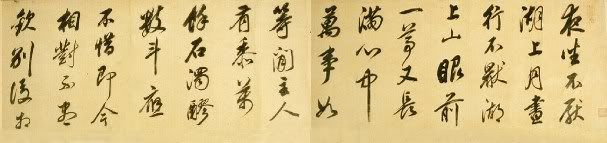 夜坐不厭
湖上月晝
行不厭湖
上山眼前
一尊又長
滿心中
萬事如
等閒主人
有黍萬
餘石濁醪
數斗應
不惜即今
相對不盡
歡別後相